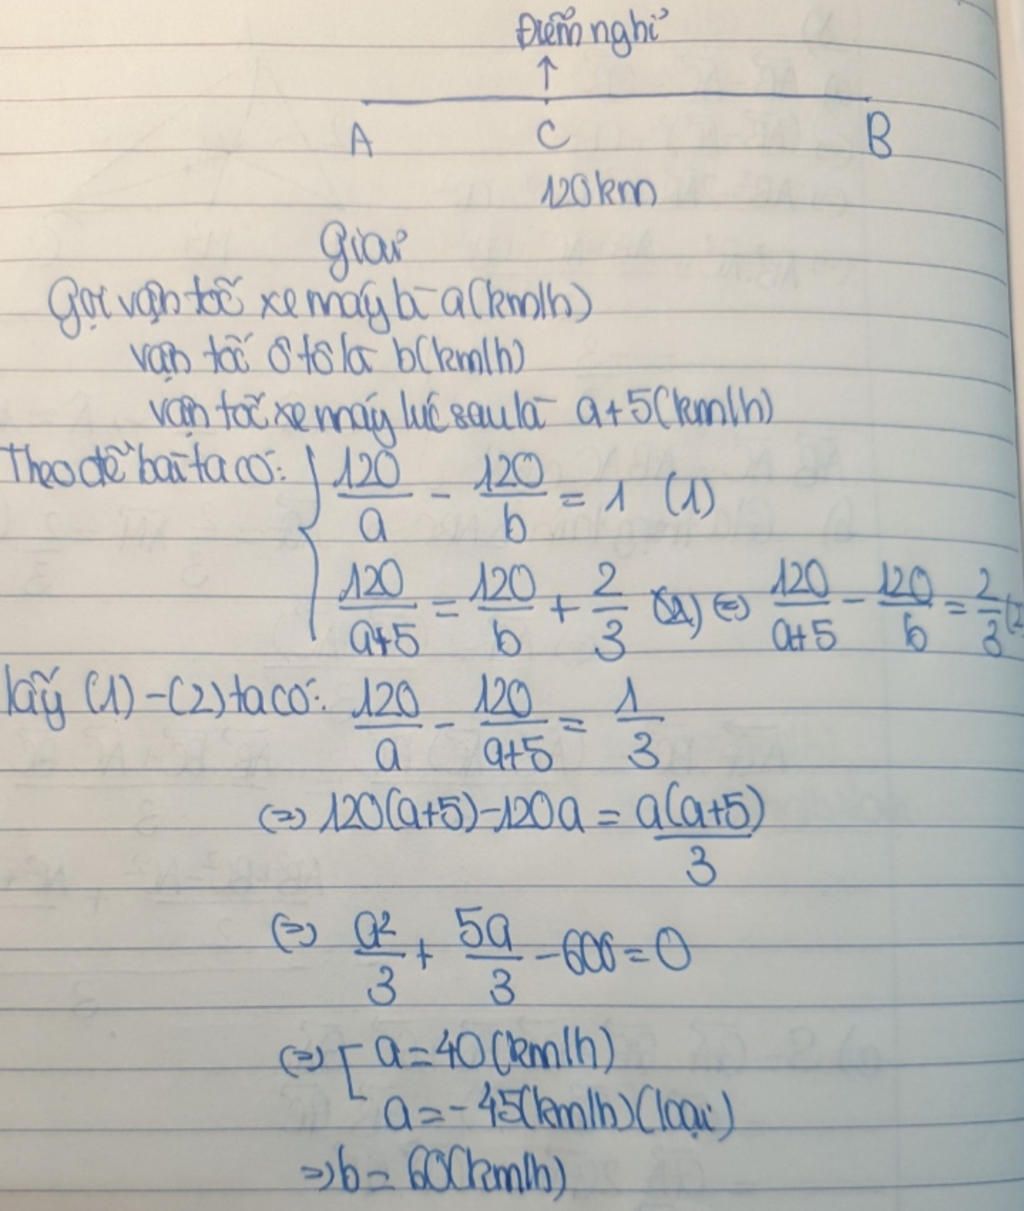 Điểm nghỉ
↑
A C B
120km
Giải
Gọi vận tốc xe máy là a(km/h)
vận tốc ô tô là b(km/h)
vận tốc xe máy lúc sau là a+5(km/h)
Theo đề bài ta có: { 120/a - 120/b = 1 (1)
120/(a+5) = 120/b + 2/3 (2) (=) 120/(a+5) - 120/b = 2/3 (2
lấy (1)-(2) ta có: 120/a - 120/(a+5) = 1/3
(=) 120(a+5)-120a = a(a+5)/3
(=) a²/3 + 5a/3 - 600 = 0
(=) [ a = 40(km/h)
a = -45(km/h)(loại)
=> b = 60(km/h)